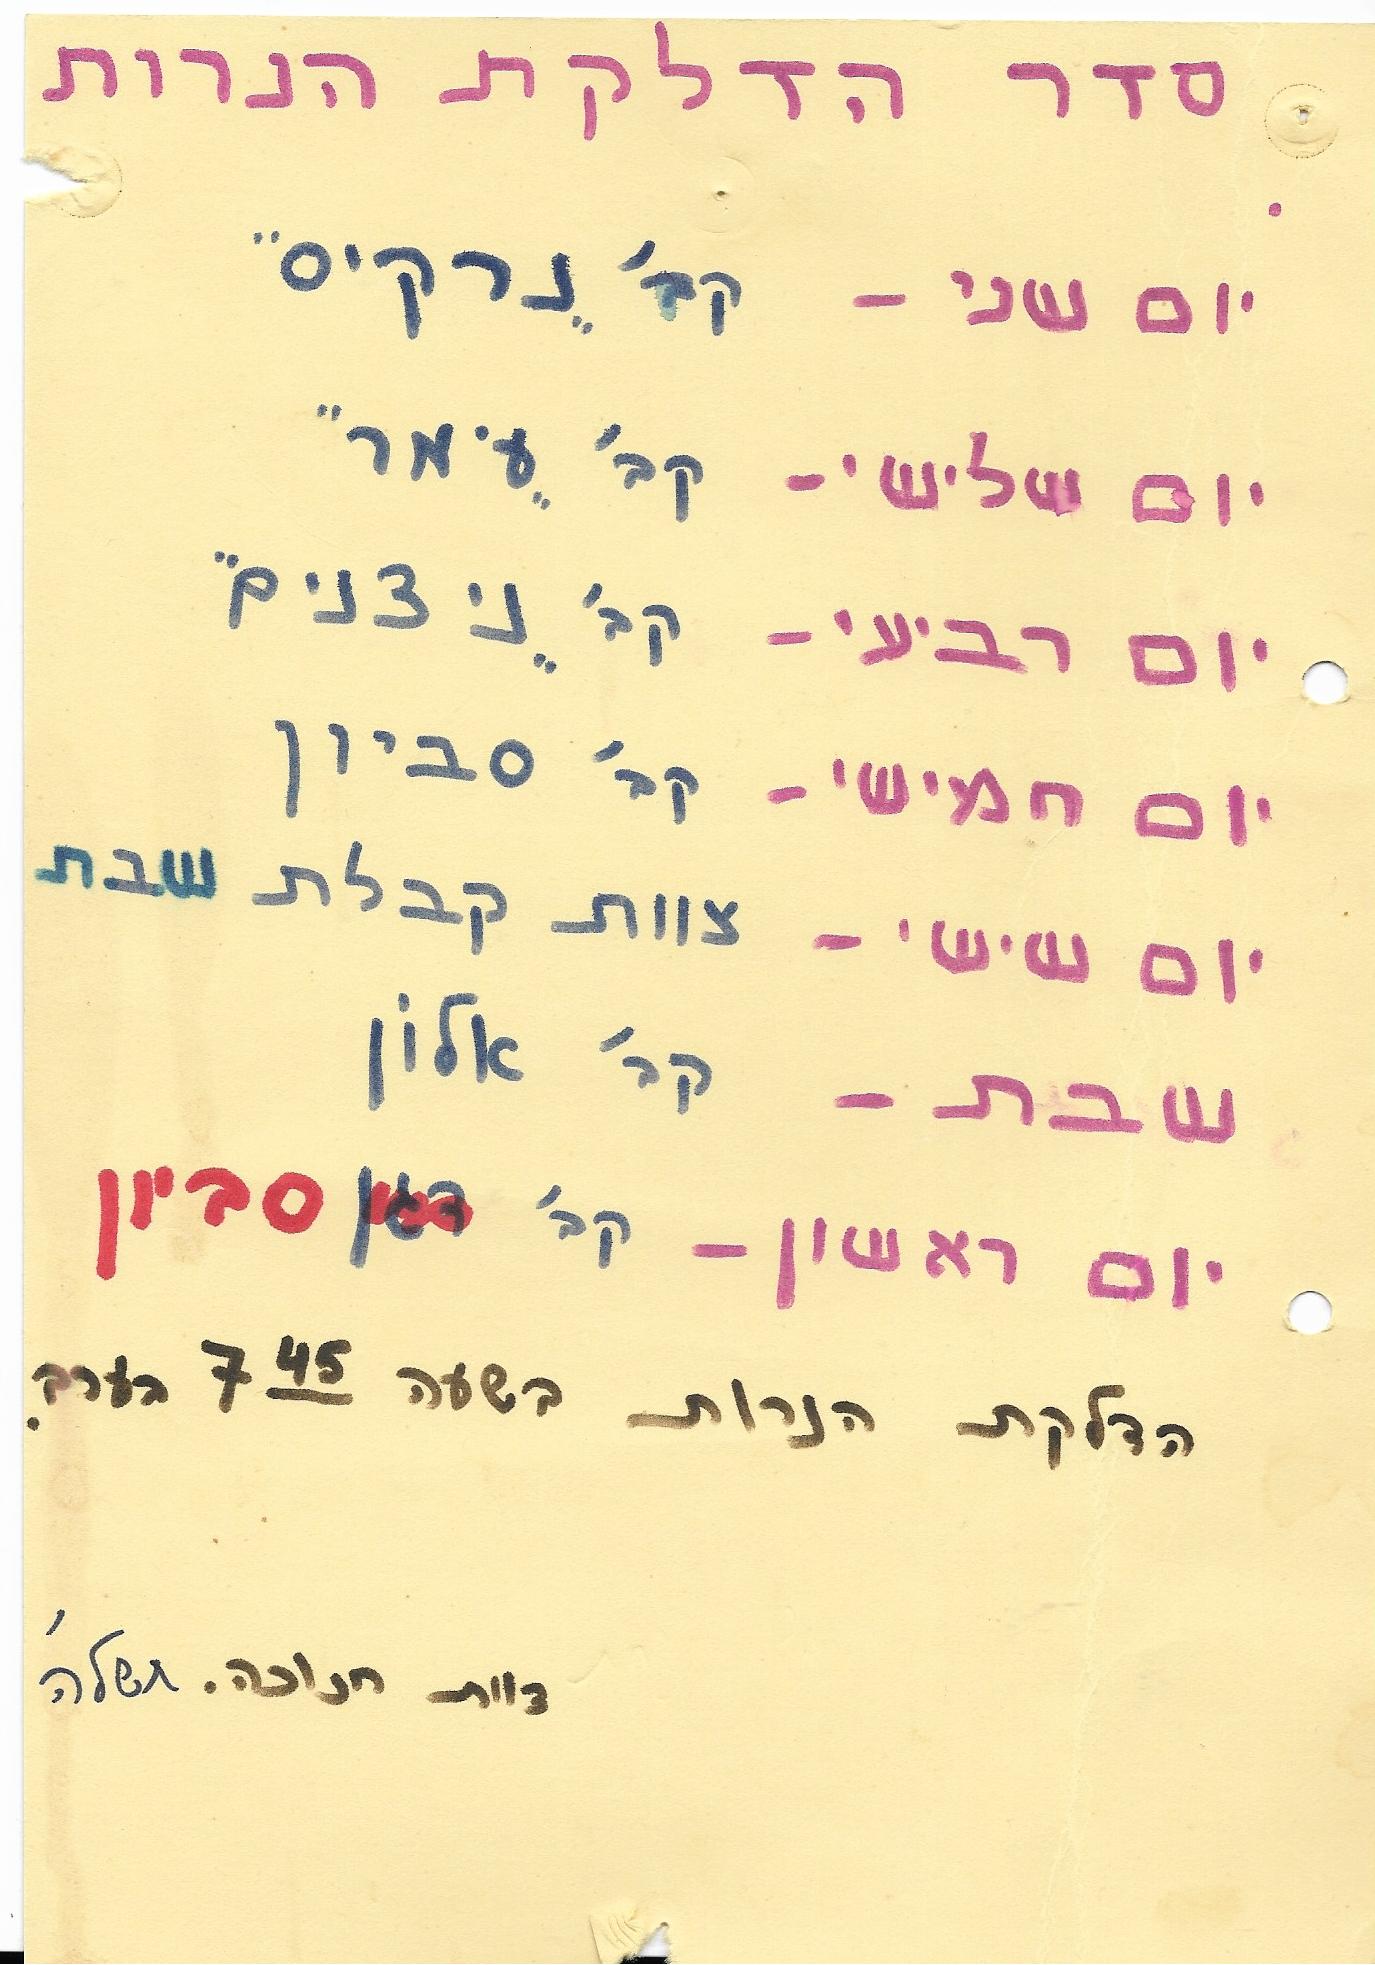 סדר הדלקת הנרות
יום שני - קב' "נרקיס"
יום שלישי - קב' "עימר"
יום רביעי - קב' "ניצנים"
יום חמישי - קב' סביון
יום שישי - צוות קבלת שבת
שבת - קב' אלון
יום ראשון - קב' דגן סביון
הדלקת הנרות בשעה 7 45 בערב.
צוות חנוכה. תשלה'